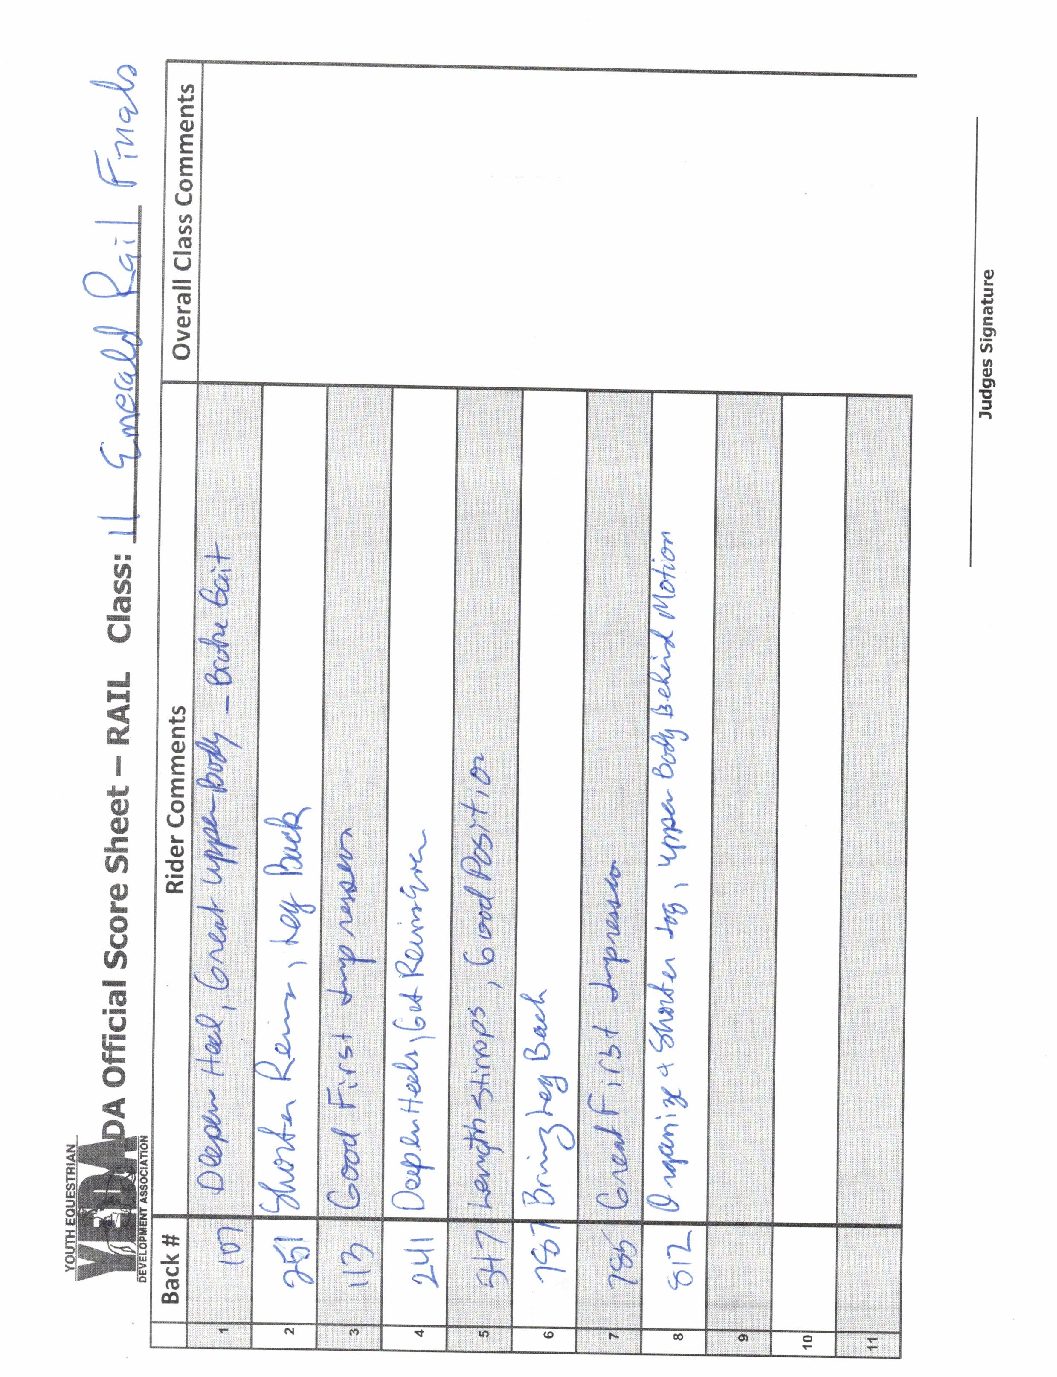 YOUTH EQUESTRIAN
YEDA
DEVELOPMENT ASSOCIATION
YEDA Official Score Sheet – RAIL Class: 11 Emerald Rail Finals
Back # Rider Comments Overall Class Comments
1 107 Deepen Heel, Great upper Body – Broke Gait
2 251 Shorten Reins, Leg Back
3 113 Good First Impression
4 241 Deepen Heels, Get Reins Even
5 547 Length Stirrops, Good Position
6 787 Bring Leg Back
7 785 Great First Impression
8 812 Organize & Shorten Jog, upper Body Behind Motion
9
10
11
Judges Signature